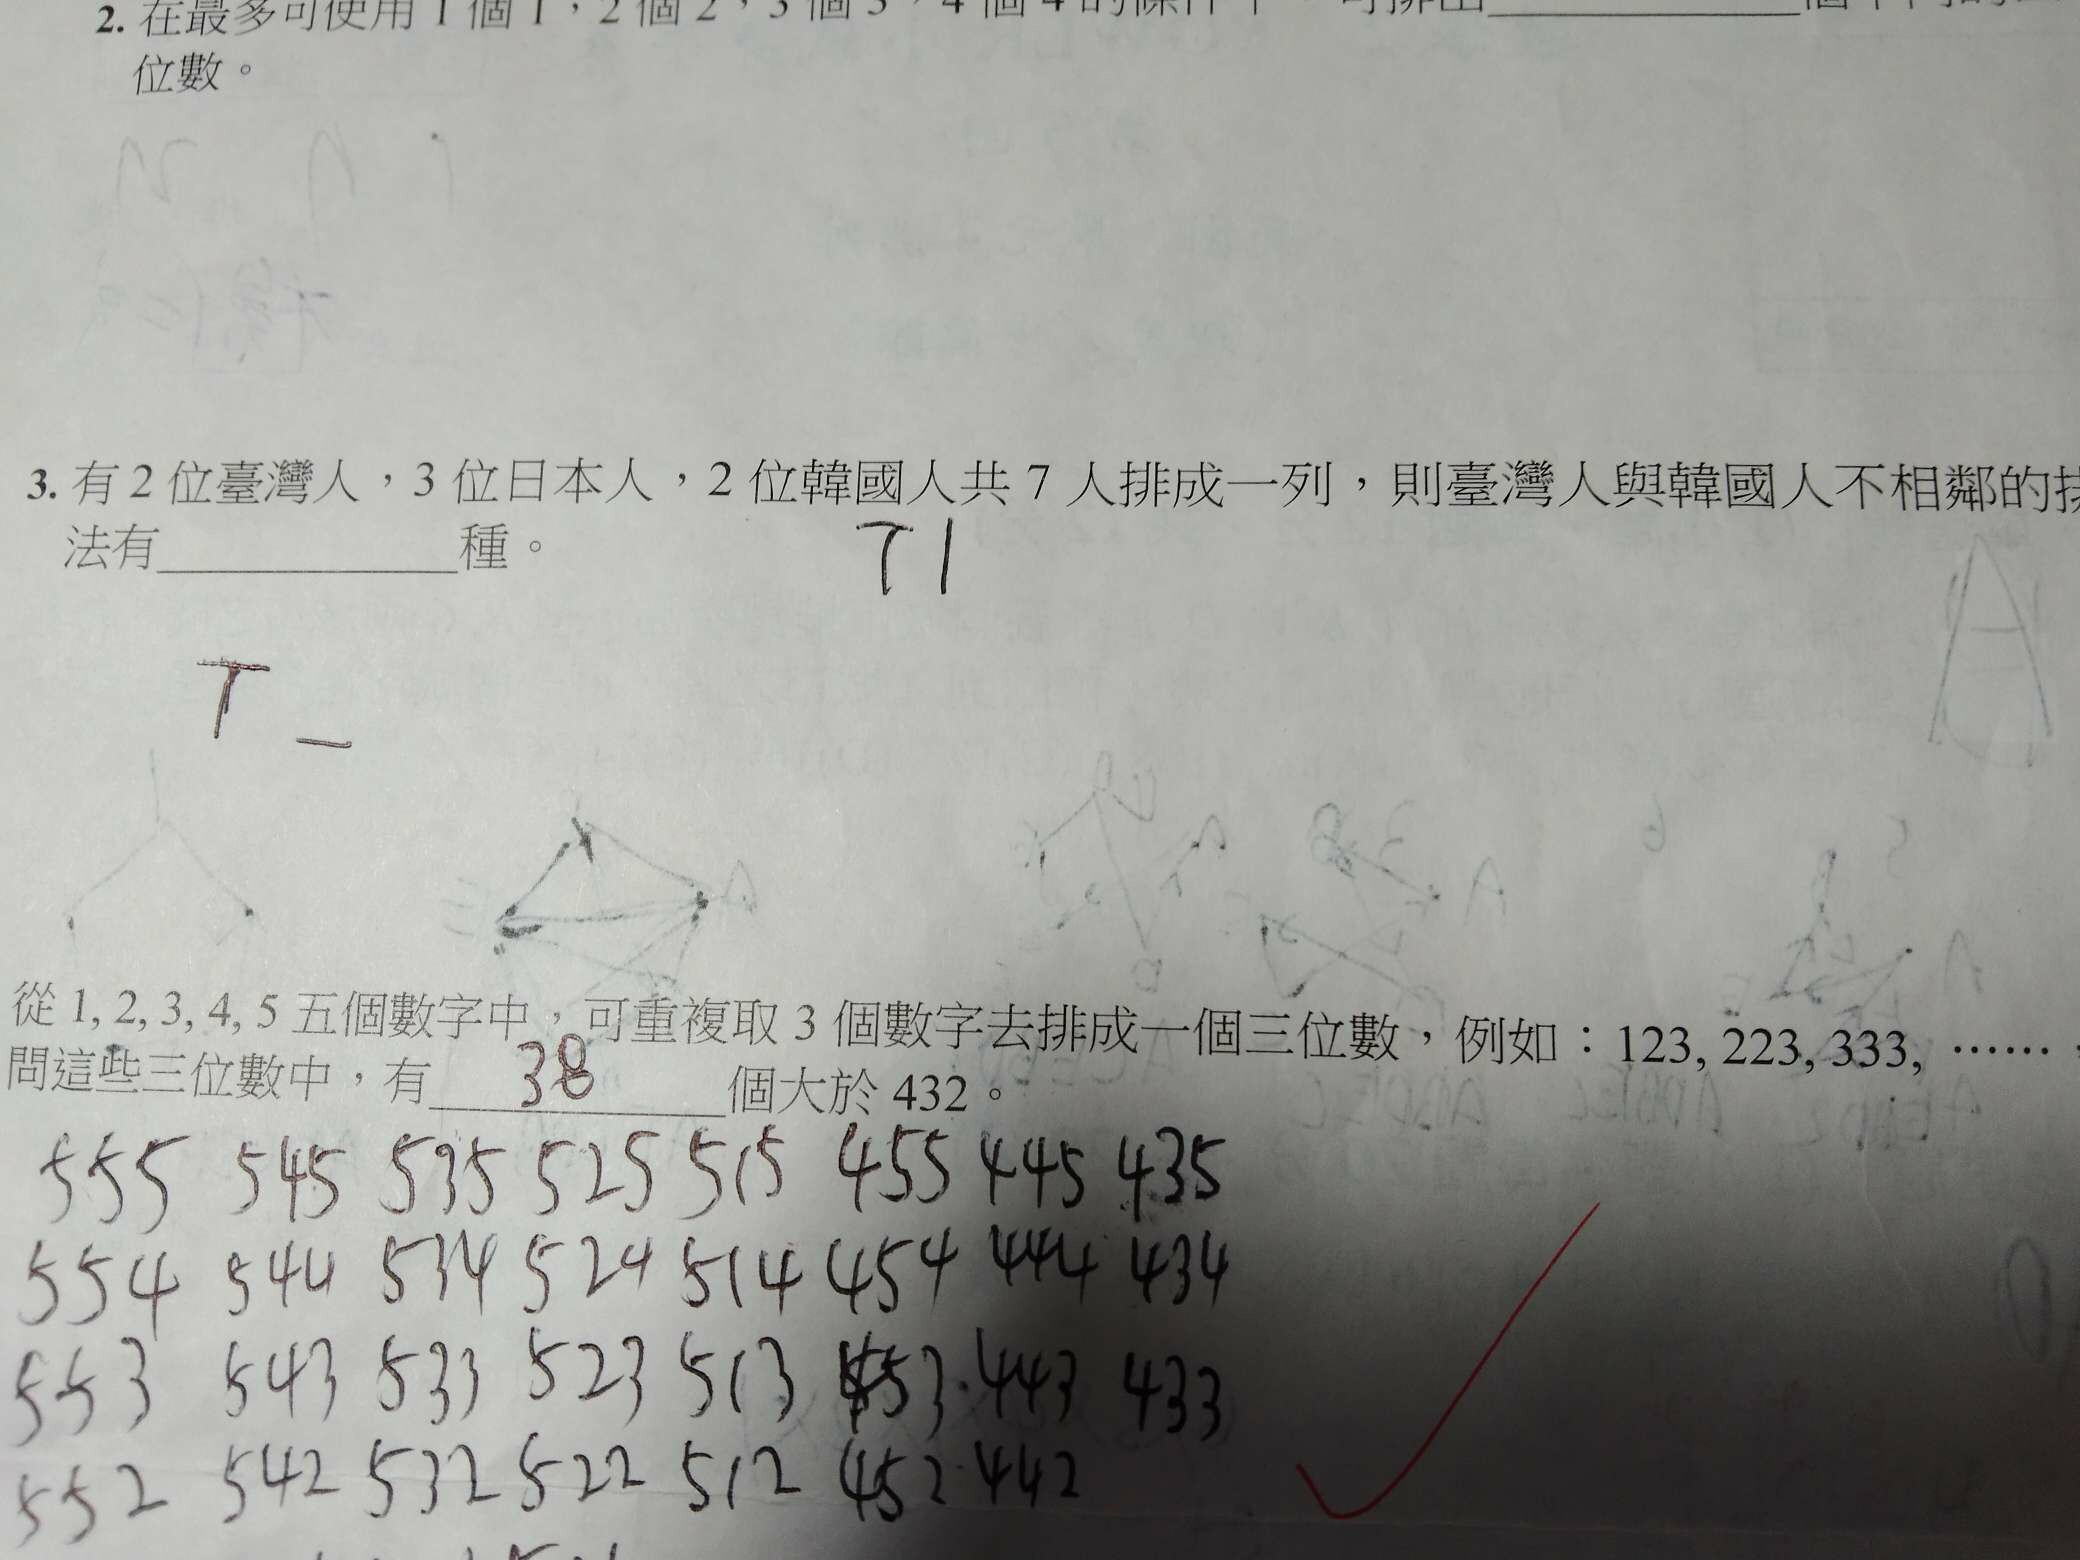 2. 在最多可使用1個1，2個2，3個3，4個4的條件下，可排出
位數。
3. 有2位臺灣人，3位日本人，2位韓國人共7人排成一列，則臺灣人與韓國人不相鄰的排
法有 種。
T _
從1, 2, 3, 4, 5五個數字中，可重複取3個數字去排成一個三位數，例如：123, 223, 333, ……，
問這些三位數中，有 38 個大於432。
555 545 535 525 515 455 445 435
554 544 534 524 514 454 444 434
553 543 533 523 513 453 443 433
552 542 532 522 512 452 442